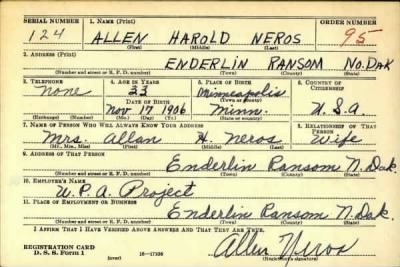 SERIAL NUMBER 1. NAME (Print) ORDER NUMBER
124 ALLEN HAROLD NEROS 95
(First) (Middle) (Last)
2. ADDRESS (Print)
ENDERLIN RANSOM NO. DAK
(Number and street or R. F. D. number) (Town) (County) (State)
3. TELEPHONE 4. AGE IN YEARS 5. PLACE OF BIRTH 6. COUNTRY OF CITIZENSHIP
none 33 Minneapolis
DATE OF BIRTH (Town or county)
Nov 17 1906 Minn. U.S.A.
(Exchange) (Number) (Mo.) (Day) (Yr.) (State or country)
7. NAME OF PERSON WHO WILL ALWAYS KNOW YOUR ADDRESS 8. RELATIONSHIP OF THAT PERSON
Mrs. Allan H. Neros Wife
(Mr., Mrs., Miss) (First) (Middle) (Last)
9. ADDRESS OF THAT PERSON
Enderlin Ransom N. Dak.
(Number and street or R. F. D. number) (Town) (County) (State)
10. EMPLOYER'S NAME
W.P.A. Project
11. PLACE OF EMPLOYMENT OR BUSINESS
Enderlin Ransom N. Dak.
(Number and street or R. F. D. number) (Town) (County) (State)
I AFFIRM THAT I HAVE VERIFIED ABOVE ANSWERS AND THAT THEY ARE TRUE.
REGISTRATION CARD
D. S. S. Form 1 (over) 16-17105 Allen Neros
(Registrant's signature)